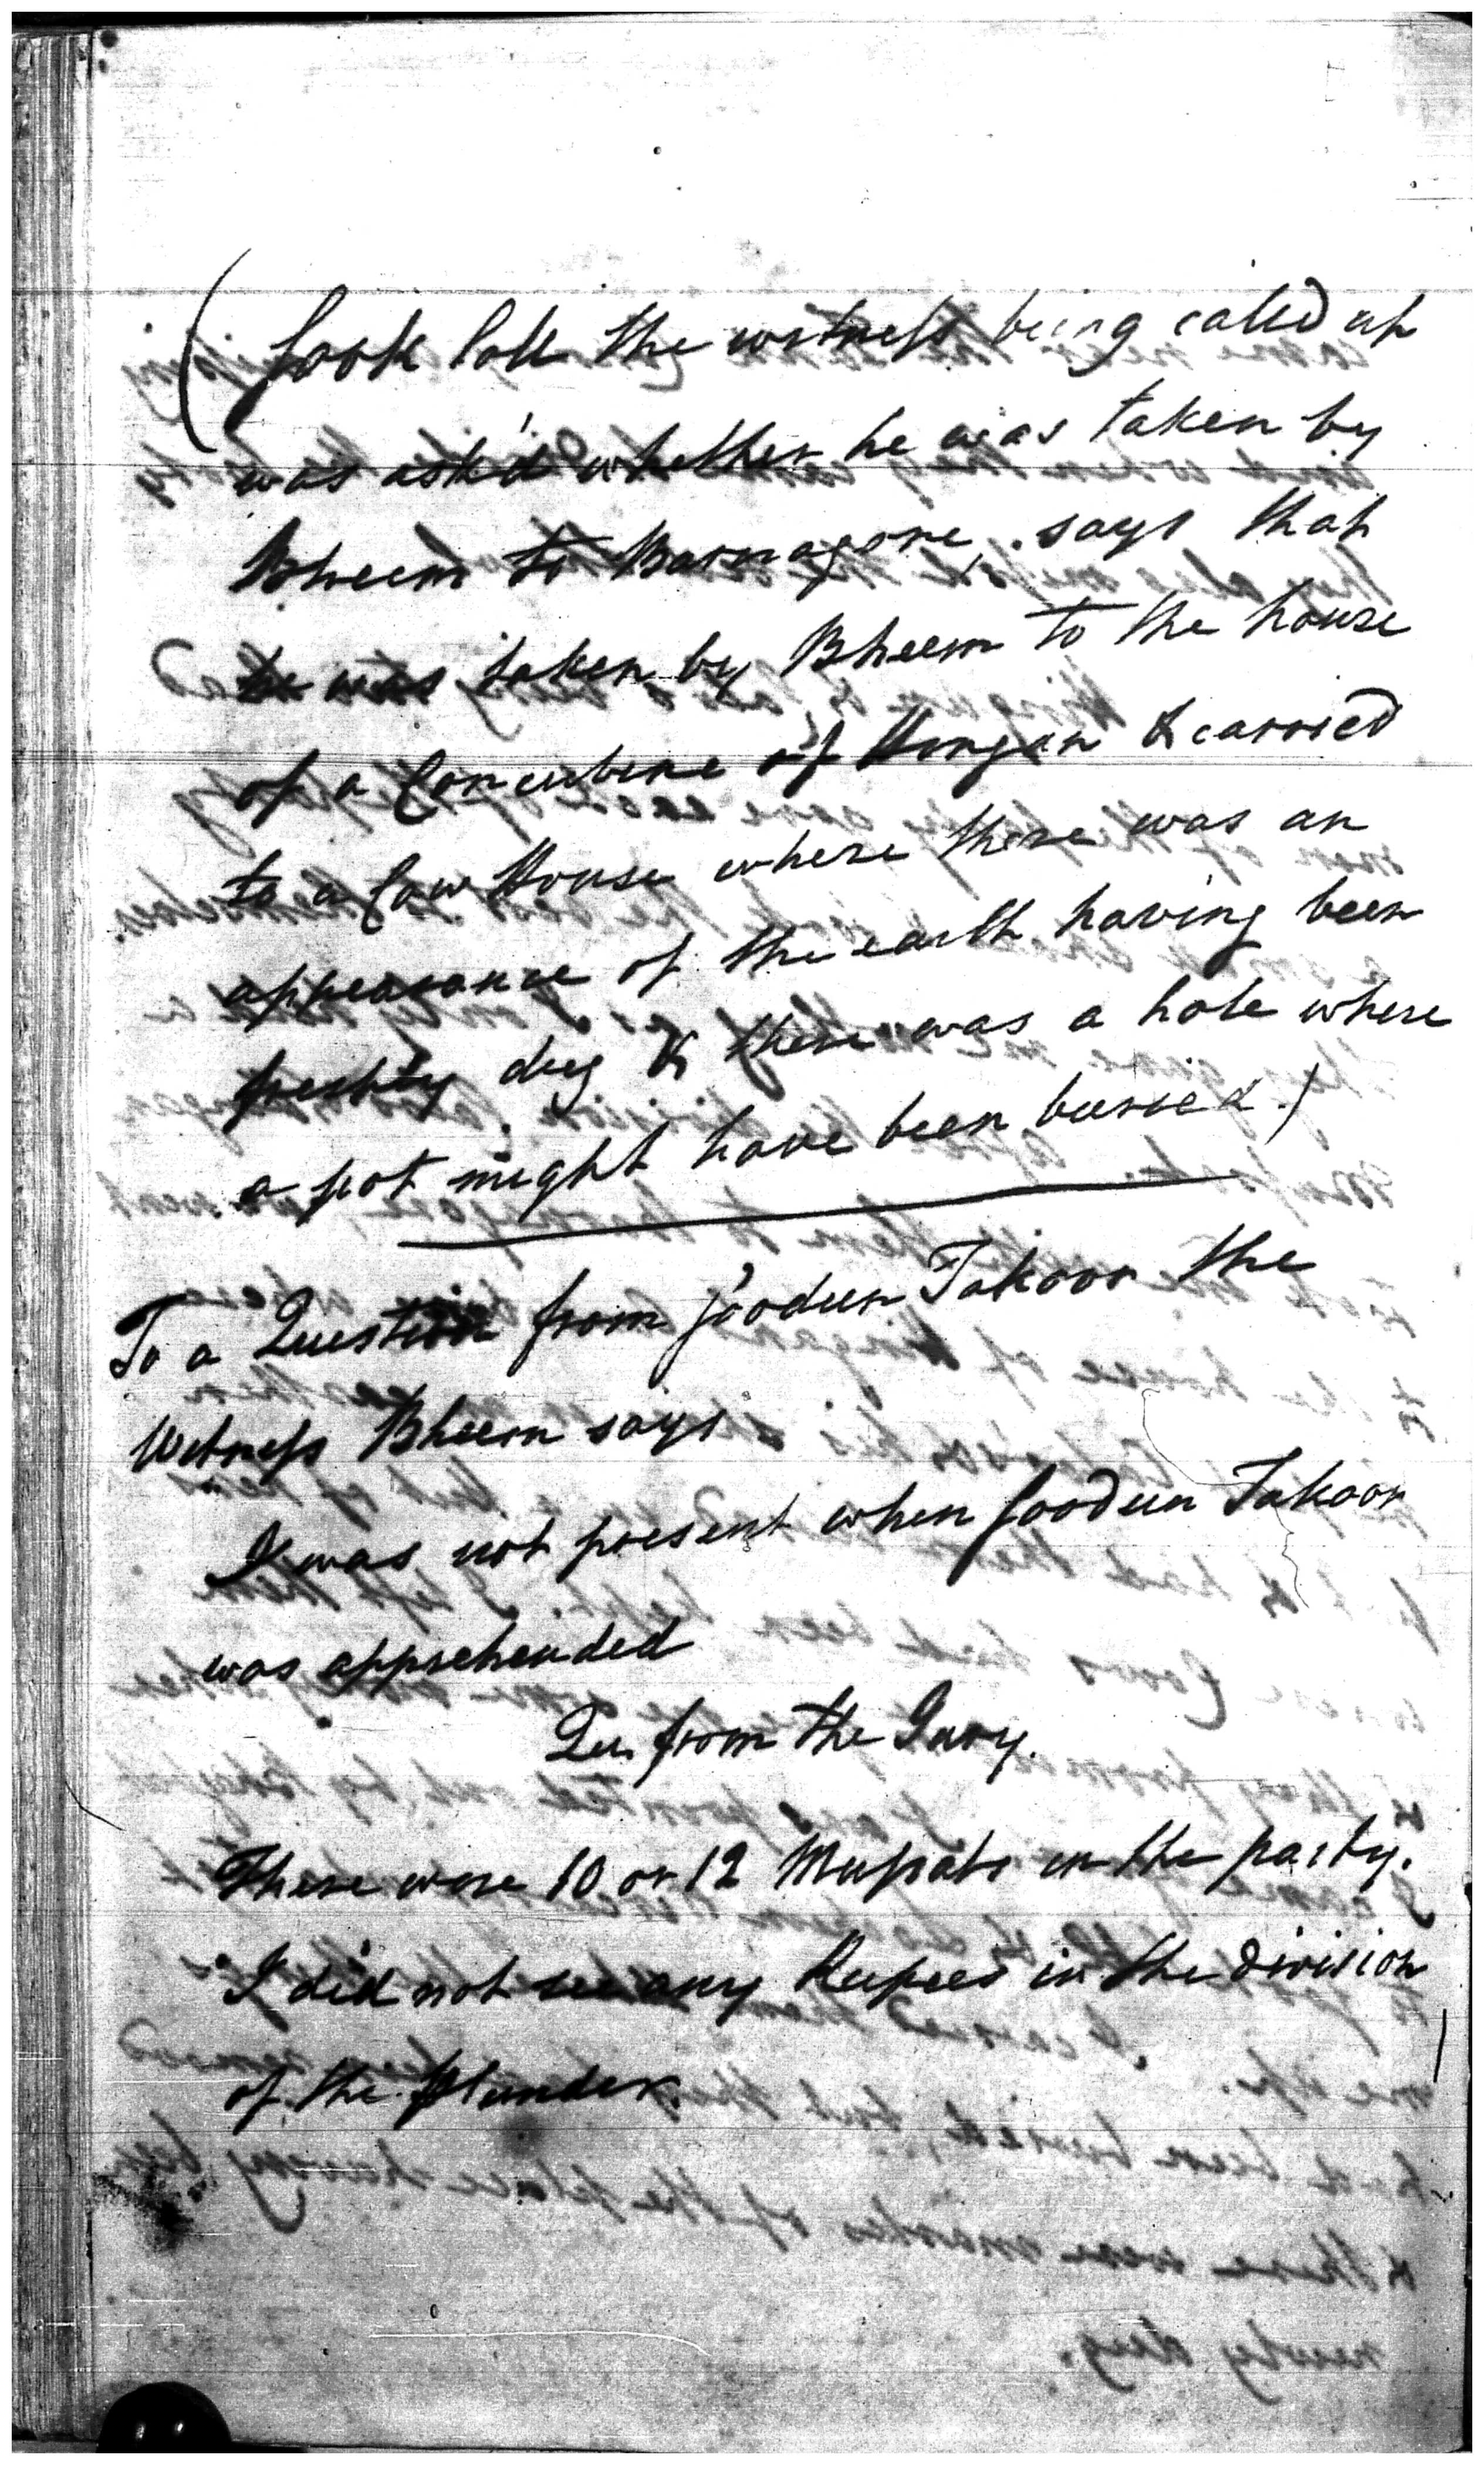 (Sook Lall the witness being called up
was ask'd whether he was taken by
Bheem to Barnagore, says that
he was taken by Bheem to the house
of a Concubine of Hingun & carried
to a Cow House where there was an
appearance of the earth having been
freshly dug & there was a hole where
a pot might have been buried.)
To a Question from Joodun Takoor the
Witness Bheem says
I was not present when Joodun Takoor
was apprehended
Qu. from the Jury.
There were 10 or 12 Mussals in the party.
I did not see any Rupees in the division
of the plunder.